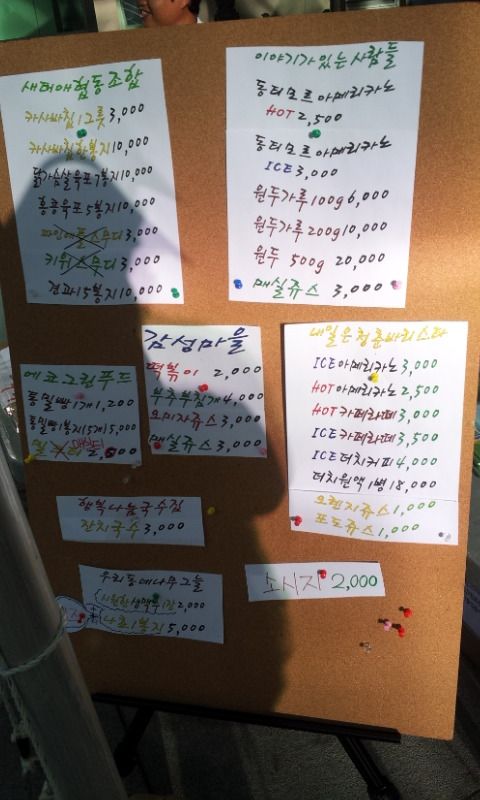 새터애협동조합
카사바칩1그릇 3,000
카사바칩한봉지 10,000
닭가슴살육포7봉지 10,000
홍콩육포5봉지 10,000
파인애플스무디 3,000
키위스무디 3,000
견과15봉지 10,000
이야기가있는사람들
동티모르아메리카노
HOT 2,500
동티모르아메리카노
ICE 3,000
원두가루 100g 6,000
원두가루 200g 10,000
원두 500g 20,000
매실쥬스 3,000
에코그린푸드
통밀빵1개 1,200
통밀빵1봉지5개 5,000
매실티
감성마을
떡볶이 2,000
부추부침개 4,000
오미자쥬스 3,000
매실쥬스 3,000
내일은청춘바리스타
ICE아메리카노 3,000
HOT아메리카노 2,500
HOT카페라떼 3,000
ICE카페라떼 3,500
ICE더치커피 4,000
더치원액1병 18,000
오렌지쥬스 1,000
포도쥬스 1,000
행복나눔국수집
잔치국수 3,000
우리동네나무그늘
시원한생맥주1잔 2,000
나쵸1봉지 5,000
소시지 2,000